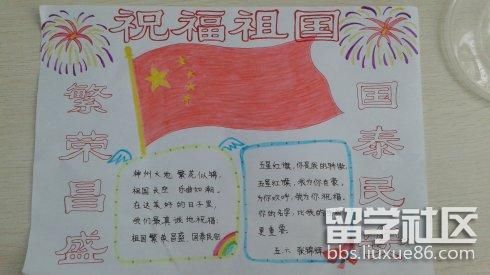 祝福祖国
繁荣昌盛
国泰民
神州大地 繁花似锦,
祖国长空 乐曲如潮。
在这美好的日子里,
我们最真诚地祝福:
祖国繁荣昌盛 国泰民安
五星红旗,你是我的骄傲,
五星红旗,我为你自豪,
为你欢呼,我为你祝福,
你的名字,比我的
更重要。
五.六
留学社区
bbs.liuxue86.com